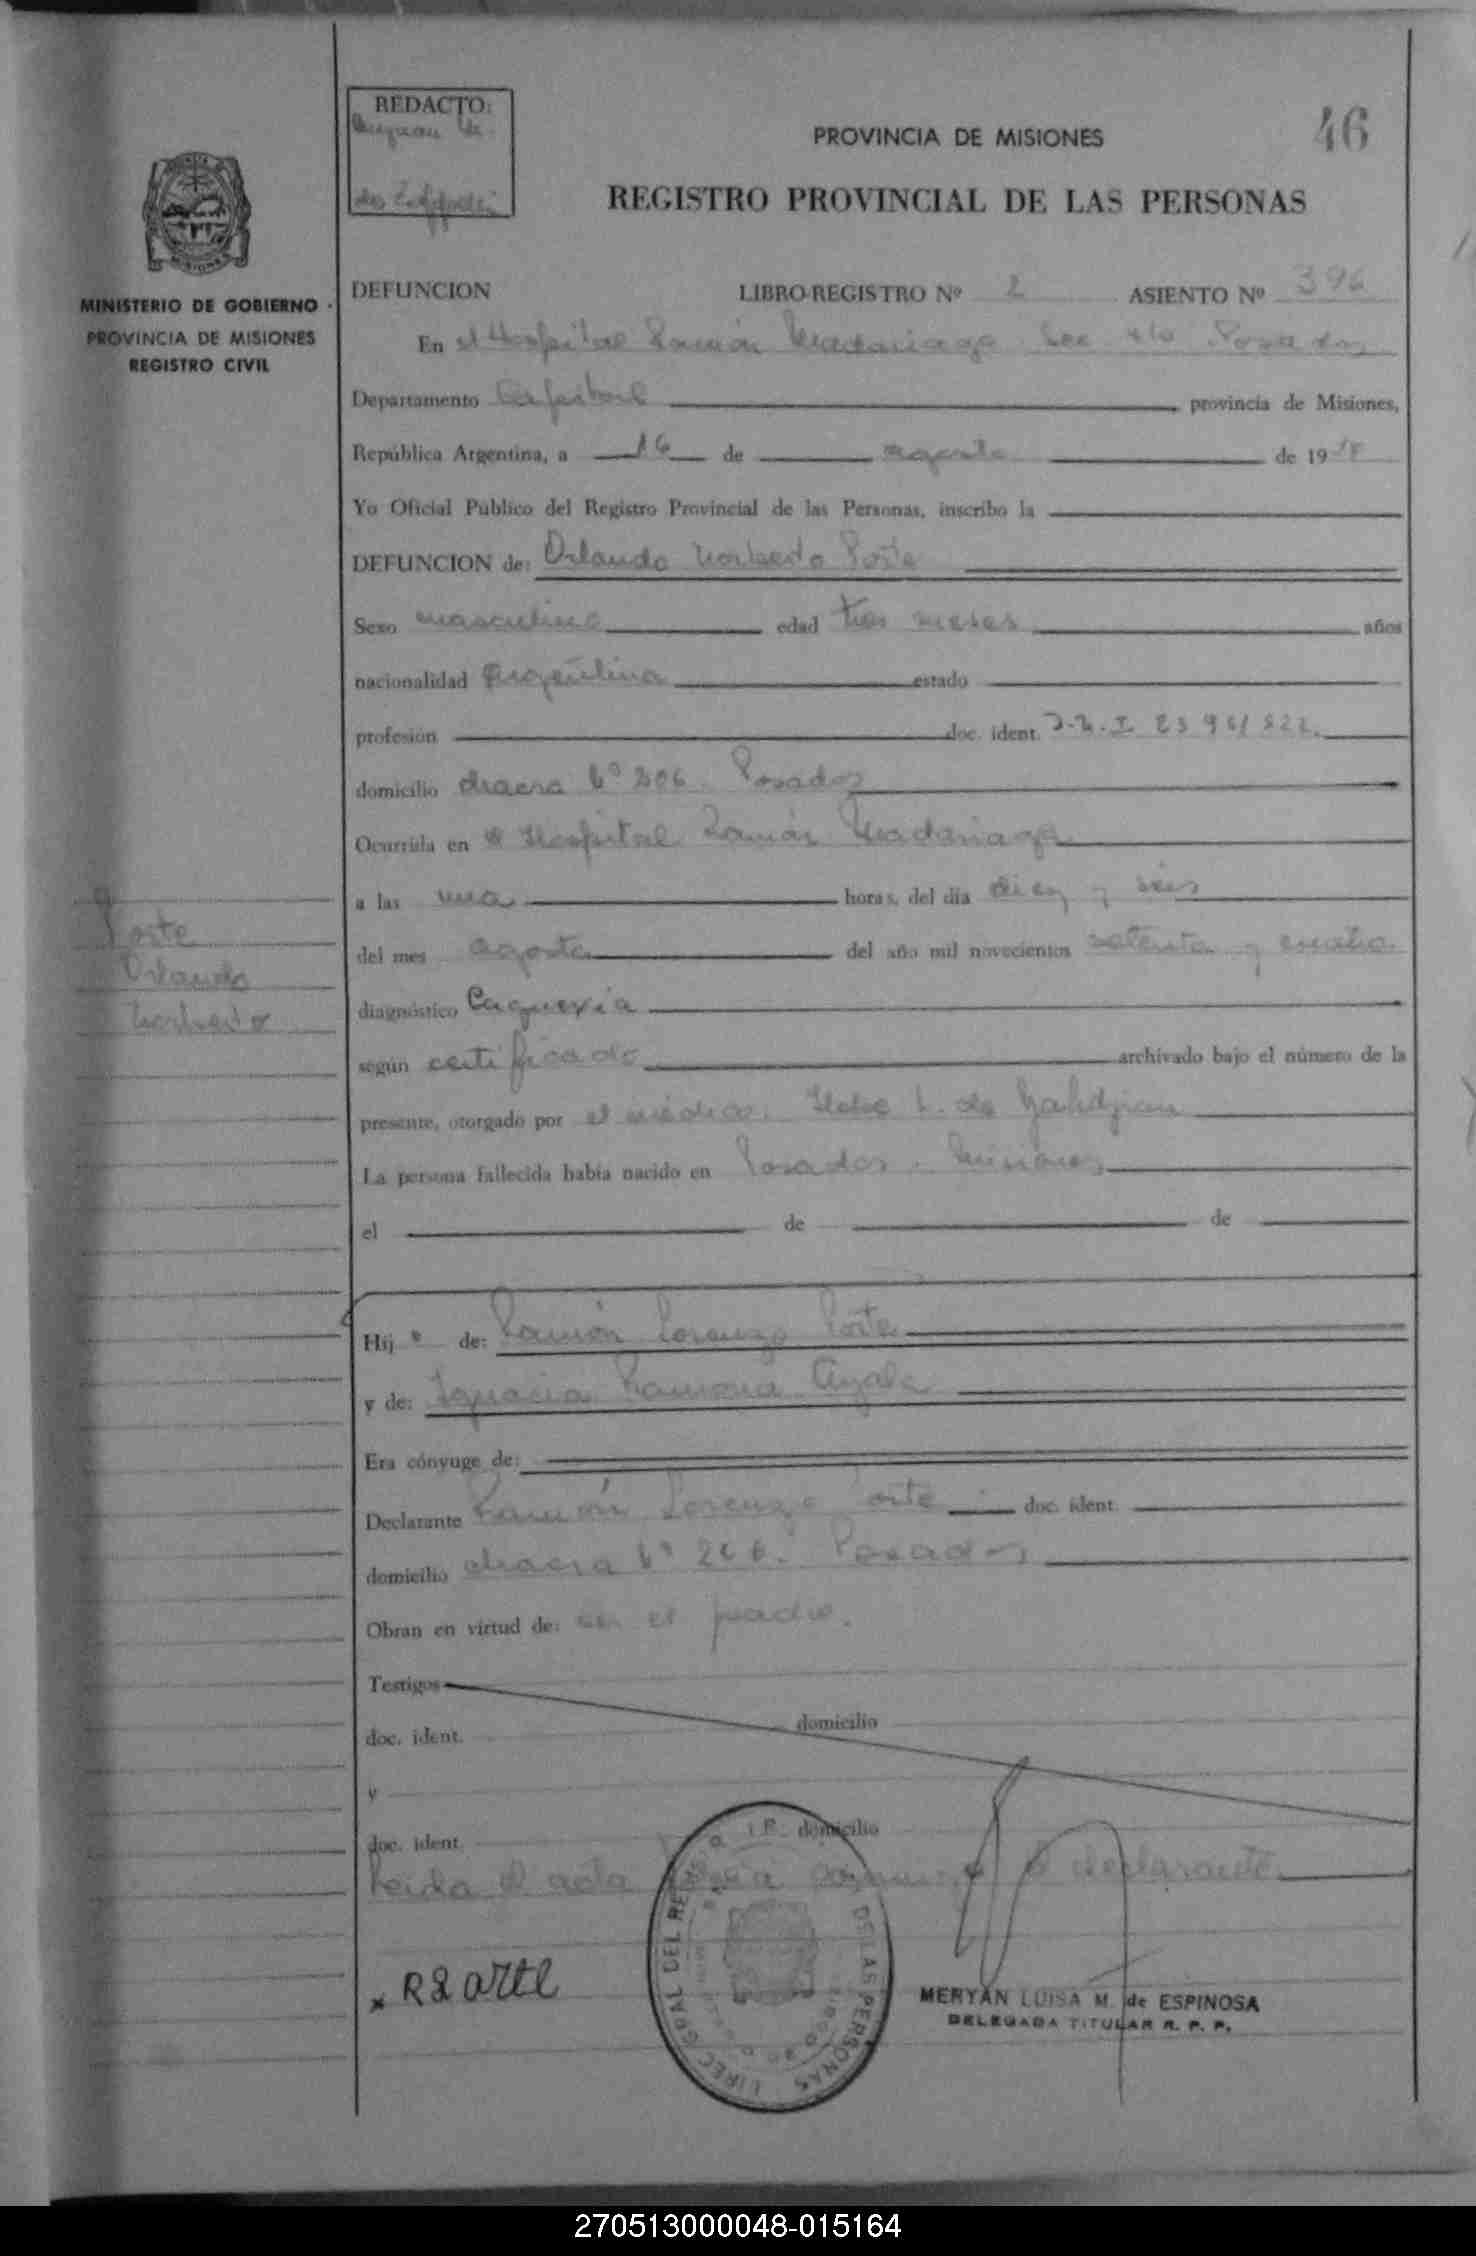 REDACTO:
46
PROVINCIA DE MISIONES
REGISTRO PROVINCIAL DE LAS PERSONAS
MINISTERIO DE GOBIERNO
PROVINCIA DE MISIONES
REGISTRO CIVIL
DEFUNCION LIBRO-REGISTRO Nº 2 ASIENTO Nº 396
En el Hospital Ramón Madariaga Posadas
Departamento Capital provincia de Misiones,
República Argentina, a 16 de agosto de 19
Yo Oficial Público del Registro Provincial de las Personas, inscribo la
DEFUNCION de: Orlando Norberto
Sexo masculino edad tres meses años
nacionalidad Argentina estado
profesión doc. ident.
domicilio chacra Nº 206. Posadas
Ocurrida en Hospital Ramón Madariaga
a las una horas, del día diez y seis
del mes agosto del año mil novecientos setenta y cuatro
diagnóstico Caquexia
según certificado archivado bajo el número de la
presente, otorgado por el médico.
La persona fallecida había nacido en Posadas - Misiones
el de de
Hij o de: Ramón Lorenzo
y de: Ignacia Ramona Ayala
Era cónyuge de:
Declarante Ramón Lorenzo doc. ident.
domicilio chacra Nº 206. Posadas
Obran en virtud de: ser el padre.
Orlando
Norberto
Testigos
doc. ident. domicilio
y
doc. ident. domicilio
Leida el acta la declarante
DIREC. GRAL DEL REG DE LAS PERSONAS
MERYAN LUISA M. de ESPINOSA
DELEGADA TITULAR R. P. P.
270513000048-015164